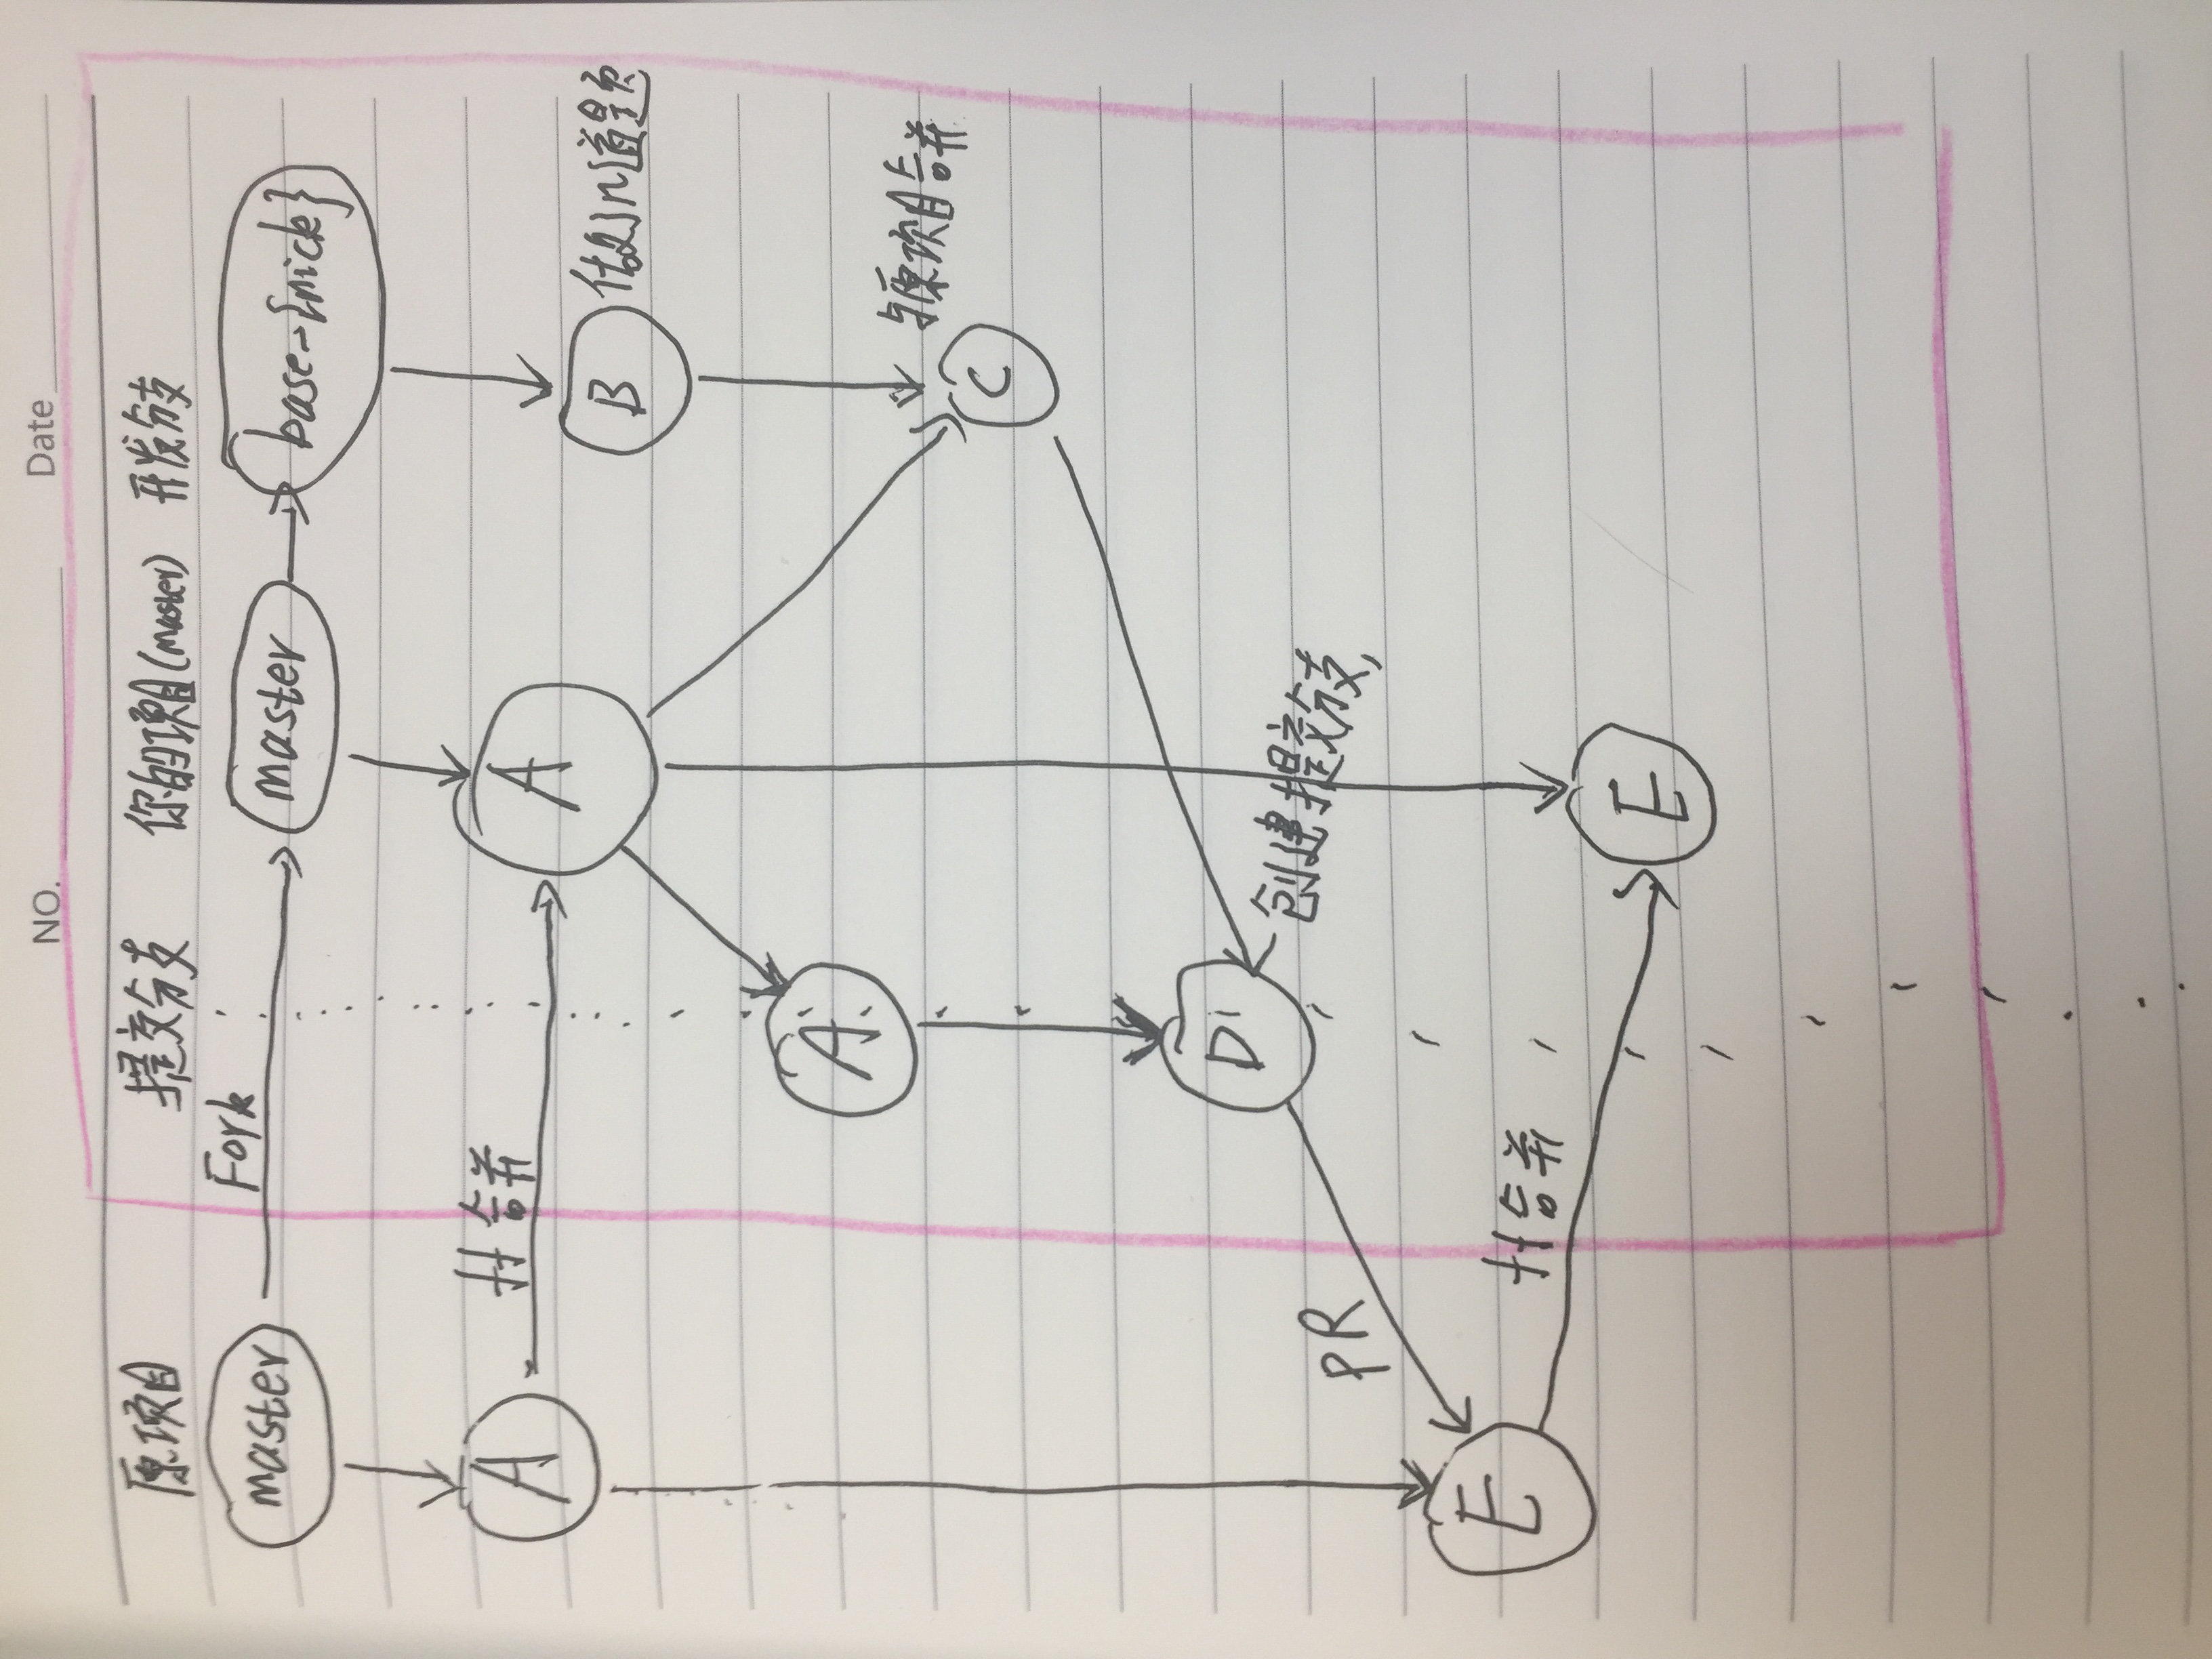 NO. Date
原项目 提交分支 你的项目(master) 开发分支
Fork
master master base-{nick}
A 合并 A
B 做几道题
A
与原项目合并
C
D 创建提交分支,
PR
E 合并
E